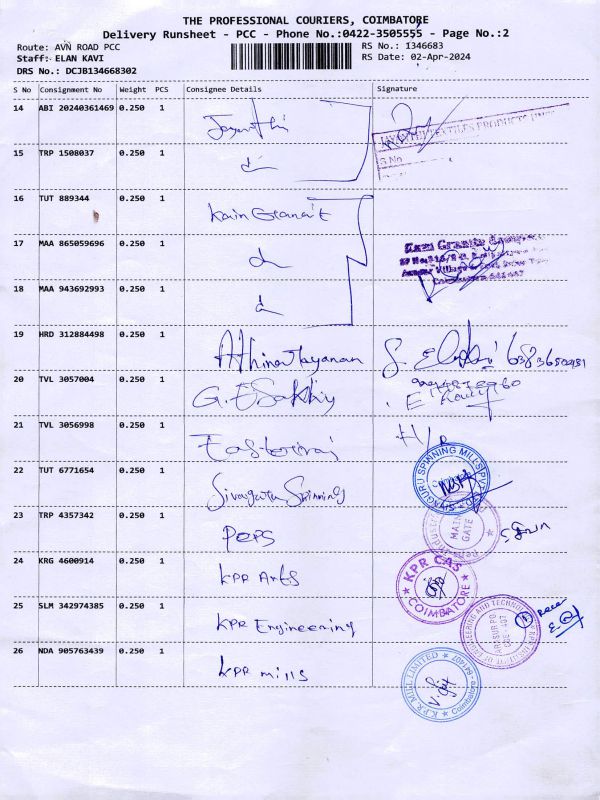 THE PROFESSIONAL COURIERS, COIMBATORE
Delivery Runsheet - PCC - Phone No.:0422-3505555 - Page No.:2
Route: AVN ROAD PCC
RS No.: 1346683
Staff: ELAN KAVI
RS Date: 02-Apr-2024
DRS No.: DCJB134668302
S No Consignment No Weight PCS Consignee Details Signature
14 ABI 20240361469 0.250 1 Jayanthi
JAYANTHI TEXTILES PRODUCTS UNIT
15 TRP 1508037 0.250 1
S.No
16 TUT 889344 0.250 1 Kain Granait
17 MAA 865059696 0.250 1
18 MAA 943692993 0.250 1
19 HRD 312884498 0.250 1 Athinarayanan
20 TVL 3057004 0.250 1 G. ESakky
21 TVL 3056998 0.250 1
22 TUT 6771654 0.250 1 Sivaguru Spinning
SIVAGURU SPINNING MILLS
23 TRP 4357342 0.250 1 PEPS
MAIN GATE
24 KRG 4600914 0.250 1 KPR Arts
KPR CAS
COIMBATORE
25 SLM 342974385 0.250 1 KPR Engineering
ARASUR PO
CBE - 407
26 NDA 905763439 0.250 1 KPR mills
K.P.R. MILL LIMITED
Coimbatore - 641407